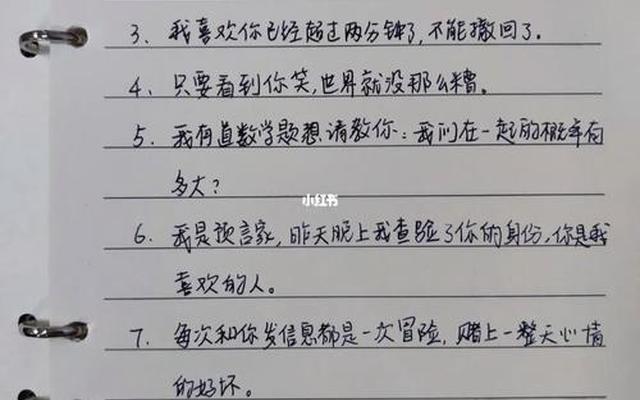 3、我喜欢你已经超过两分钟了,不能撤回了。
4、只要看到你笑,世界就没那么糟。
5、我有道数学题想请教你:我们在一起的概率有
多大?
小红书
6、我是预言家,昨天晚上我查验了你的身份,你是我
喜欢的人。
7、每次和你发信息都是一次冒险,赌上一整天心情
的好坏。